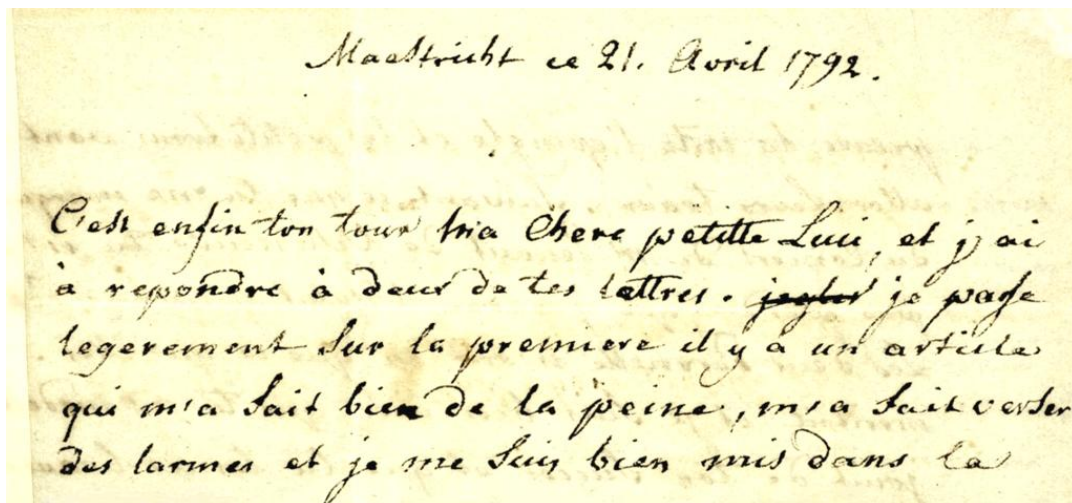 Maestricht ce 21. Avril 1792.
C'est enfin ton tour ma Chere petitte Luii, et j'ai
à repondre à deux de tes lettres. je passe
legerement sur la premiere il y a un article
qui m'a fait bien de la peine, m'a fait verser
des larmes et je me suis bien mis dans la